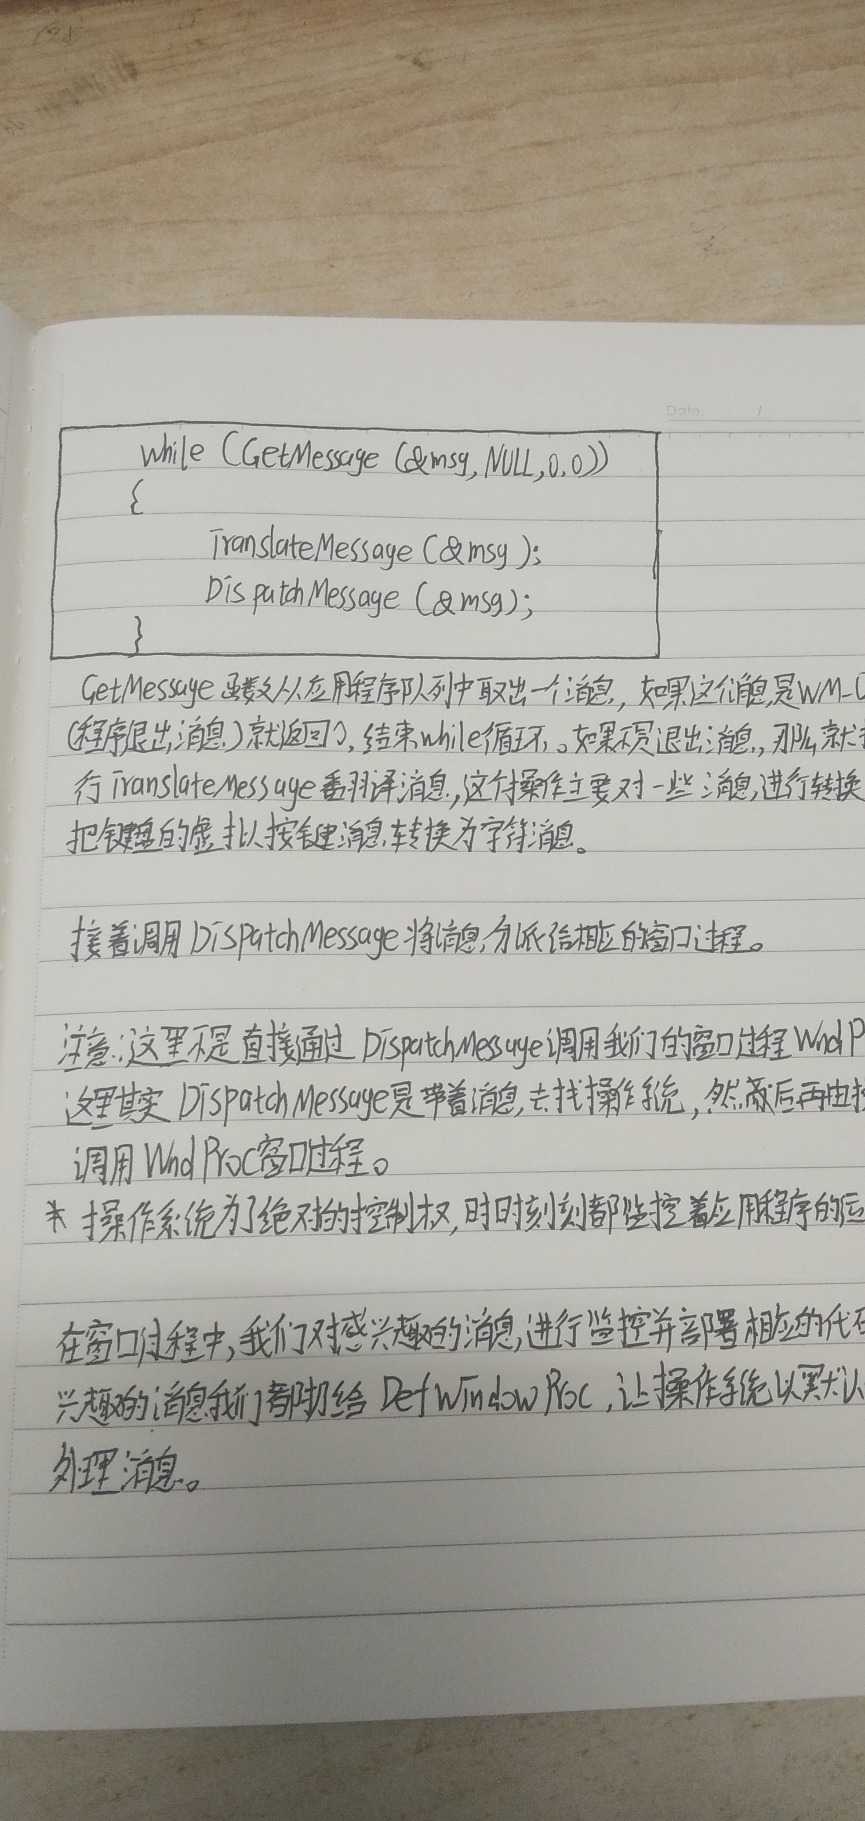 Date /
while (GetMessage (&msg, NULL, 0, 0))
{
TranslateMessage (&msg);
DispatchMessage (&msg);
}
GetMessage 函数从应用程序队列中取出一个消息, 如果这个消息是WM_
(程序退出消息)就返回0, 结束while循环。如果不是退出消息, 那么就
行TranslateMessage翻译消息, 这个操作主要对一些消息进行转换
把键盘的虚拟按键消息转换为字符消息。
接着调用DispatchMessage将消息分派给相应的窗口过程。
注意:这里不是直接通过DispatchMessage调用我们的窗口过程WndP
这里其实DispatchMessage是带着消息去找操作系统, 然后再由
调用WndProc窗口过程。
* 操作系统为了绝对的控制权, 时时刻刻都监控着应用程序的运
在窗口过程中, 我们对感兴趣的消息进行监控并部署相应的代
兴趣的消息我们都扔给DefWindowProc, 让操作系统以默认
处理消息。